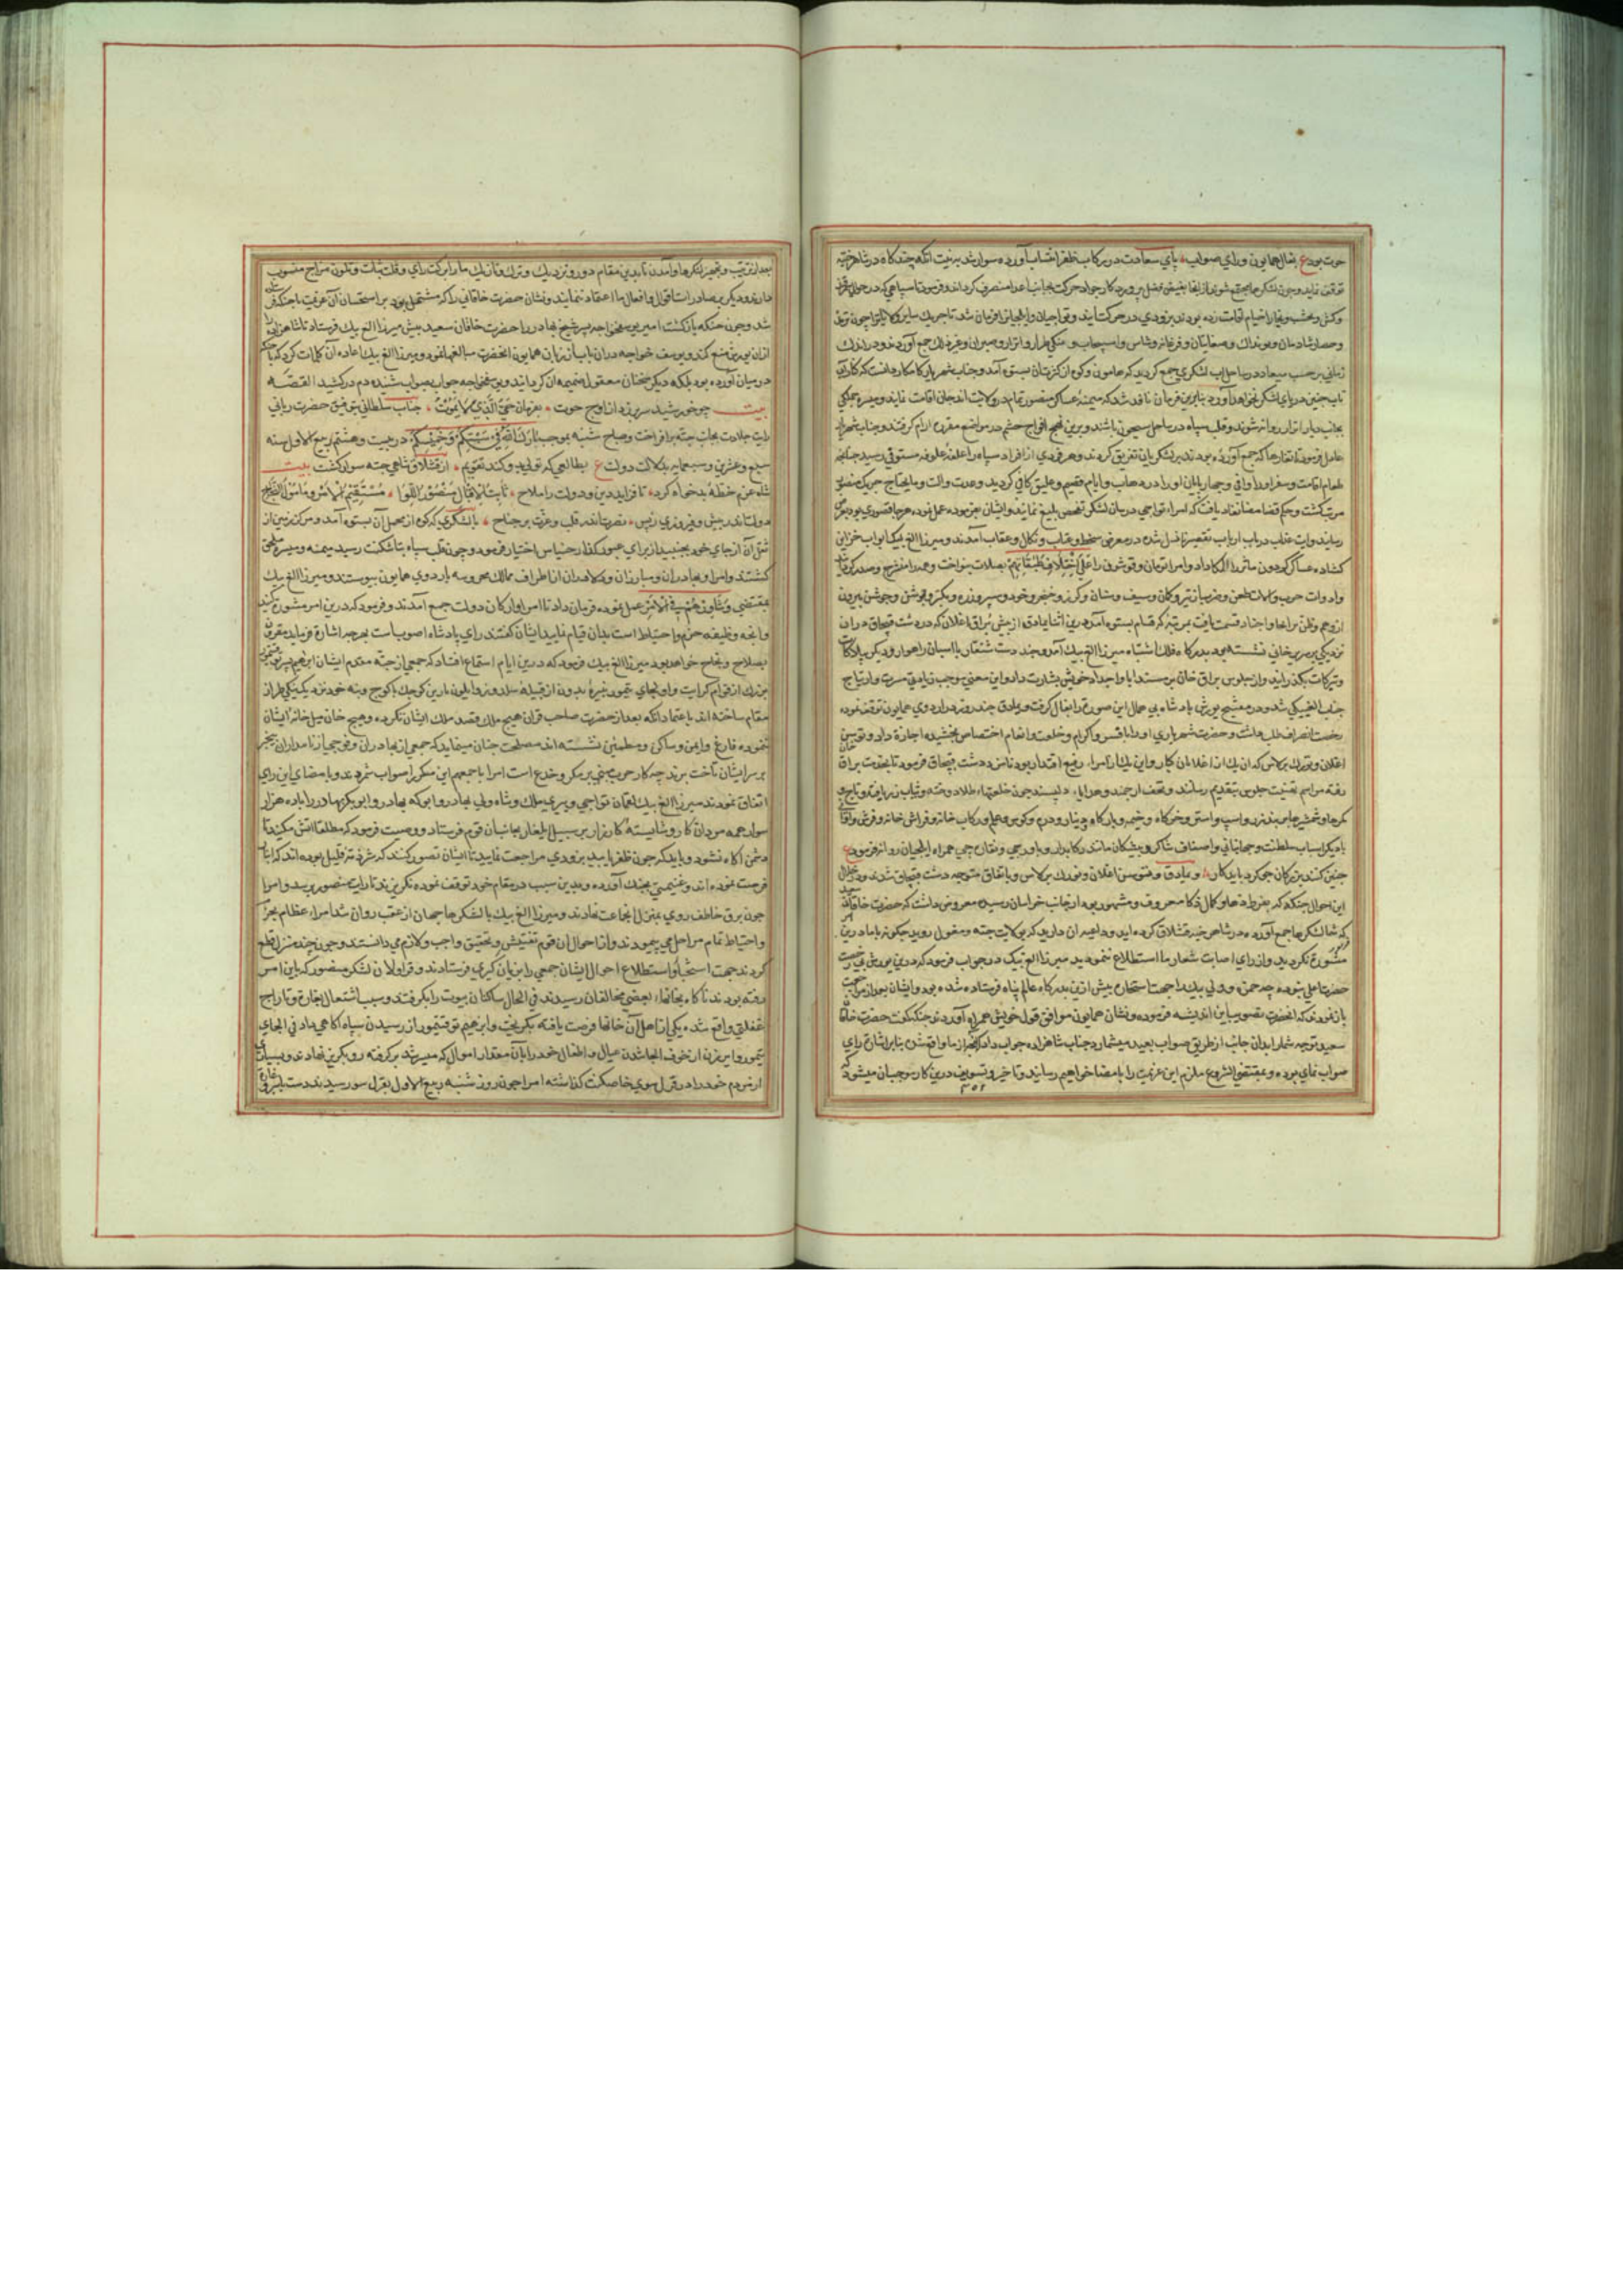 حوت بود ع بفال همایون و رای صواب پای سعادت در رکاب ظفر انتساب آورده سوار شد به نیت آنکه چندگاه در شاهرخیه
توقف نماید و چون لشکرها مجتمع شوند از آنجا بفیض فضل پروردکار جواد حرکت بجانب اعدا منصرف کرداند و فرمود تا سپاهی که در حوالی
و کش و نخشب و بخارا خیام اقامت زده بودند بزودی در حرکت آیند و تواجیان و ایلچیان را فرمان شد تا جریک سایر ولایات چون ترمد
و حصار شادمان و صغانیان و فرغانه و شاس و اسپیجاب و طراز و اترار و سیران و غیر ذلک جمع آوردند و در اندک
زمانی بر حسب میعاد در ساحل آب لشکری جمع کردید که هامون و کوه از کثرت آن بستوه آمد و جناب شهریار کامکار دانست که
تاب چنین دریای لشکر نخواهد آورد بنابرین فرمان نافذ شد که میمنه عساکر منصور تمام در ولایت اندجان اقامت نماید و میسره
بجانب دیار اترار روانه شوند و قلب سپاه در ساحل سیحون باشند و برین نهج افواج حشم در مواضع مقرره آرام گرفتند و جناب شهریار
عامل فرمود تا تغارها که جمع آورده بودند بر لشکریان تفریق کردند و هر فردی از افراد سپاه را علفه و علوفه مستوفی رسید چنانچه
طعام اقامت و سفر او را وافی و چهارپایان او را در ذهاب و ایام مقیم و علیق کافی گردید و عدت و آلت و مایحتاج جریک منصور
مرتب گشت و حکم قضا مضا نفاذ یافت که امراء تواجی در میان لشکر تفحص بلیغ نمایند و ایشان بفرموده عمل نموده هرجا قصوری بود بعرض
رسانیدند و ارباب تقصیر در معرض سخط و عقاب و نکال و عقاب آمدند و میرزا الغ بیک ابواب خزاین
کشاده عساکر گردون ماثر را الکا داد و امراء تومان و قوشون را علی اختلاف طبقاتهم بصلات بنواخت و همه را منشرح
و ادوات حرب و آلات طعن و ضرب از تیر و کمان و سیف و سنان و گرز و خنجر و خود و سپر و زره و بکتر و جوشن بیرون
از وهم و ظن بر ابطال و اجناد قسمت یافت بمرتبه که قسام بستوه آمد درین اثنا ایادق از پیش براق اغلان که در دشت قبچاق در آن
نزدیکی بر سریر خانی نشسته بود بدرگاه فلک اشتباه میرزا الغ بیک آمد و چند دست شنقار با اسبان راهوار و دیگر بیلاکات
و تبرکات بگذرانید و از جلوس براق خان بر مسند آبا و اجداد خویش بشارت داد و این معنی موجب زیادتی مسرت و ارتیاح
جناب الغ بیکی شد و در مفتتح یورش پادشاه بی همال این صورت را بفال گرفت و ایادق چند روز در اردوی همایون توقف نموده
رخصت انصراف طلب داشت و حضرت شهریاری او را با فسر و اکرام و خلعت و انعام اختصاص بخشیده اجازت داد و
اغلان و نوروزک برلاس که آن یک از اغلانان کبار و این یک از امراء رفیع اقتدار بود نامزد دشت قبچاق فرمود تا بخدمت براق خان
رفته مراسم تهنیت جلوس بتقدیم رسانند و تحف ارجمند و هدایاء دلپسند چون خلعتها
کمرها و شمشیرهای بند زر و اسب و استر و خرگاه و خیمه و بارگاه و دینار و درم و کوس و علم و رکاب خانه و فراش خانه و فرش
با دیگر اسباب سلطنت و جهانبانی و اصناف شاگرد پیشگان مانند رکابدار و باورچی و نقاره چی همراه ایلچیان روانه فرمود ع
چنین کنند بزرگان چو کرد باید کار و ایادق و اغلان و نوروزک برلاس باتفاق متوجه دشت قبچاق شدند و در خلال
این احوال جنکه که بفرط دها و کمال ذکا معروف و مشهور بود از جانب خراسان رسیده معروض داشت که حضرت خاقان سعید
که شما لشکرها جمع آورده در شاهرخیه قشلاق کرده اید و داعیه آن دارید که بولایت جته و مغول روید چگونه با ما درین امر
مشورت نکردید و از رای اصابت شعار ما استطلاع ننمودید میرزا الغ بیک در جواب فرمود که درین یورش بی رخصت
حضرت اعلی نبوده چه حمزه و ولی بیک را جهت استجازه پیش ازین بدرگاه عالم پناه فرستاده شده بود و ایشان بعد از مراجعت
باز نمودند که آنحضرت تصویب این اندیشه فرموده و نشان همایون موافق قول خویش همراه آوردند جنکه گفت حضرت خاقان
سعید توجه شما را بدان جانب از طریق صواب بعید میشمارد جناب شاهزاده جواب داد که
صواب نمای بوده و بمقتضی الشروع ملزم این عزیمت را بامضا خواهیم رسانید و تاخیر و تسویف درین کار موجب آن میشود که
بعد از ترتیب و تجهیز لشکرها و آمدن تا بدین مقام دور و نزدیک و ترک و تازیک ما را برکت رای و قلت ثبات و تلون مزاج منسوب
دارند و دیگر بر صادرات اقوال و افعال ما اعتماد ننمایند و نشان حضرت خاقانی را که مشتمل بود بر استحسان آن عزیمت با جنکه
شد و چون جنکه بازگشت امیر یوسف خواجه پسر شیخ بهادر را حضرت خاقان سعید پیش میرزا الغ بیک فرستاد تا شاهزاده را
از آن یورش منع کند و یوسف خواجه در آن باب از زبان همایون آنحضرت مبالغها نمود و میرزا الغ بیک اعاده آن کلمات کرد که با جنکه
در میان آورده بود بلکه دیگر سخنان معقول ضمیمه آن گردانید و یوسف خواجه جواب بصواب شنیده دم درکشید القصه
بیت چو خورشید سر برزد از اوج حوت بفرمان حی الذی لا یموت جناب سلطانی بتوفیق حضرت ربانی
رایت جلادت بجانب جته برافراخت و صباح شنبه بموجب بارک الله فی سبتکم و خمیسکم در بیست و هشتم ربیع الاول سنه
سبع و عشرین و ثمانمایه بدلالت دولت ع بطالعی که تولا بدو کند تقویم از قشلاق شاهرخیه سوار گشت بیت
شاه عزم خطه بدخواه کرد تا فزاید دین و دولت را صلاح ثابت الاقبال منصور اللوا مستقیم الامر مامول النجاح
دولتش اندر پیش و فیروزی ز پس نصرتش اندر قلب و عزت بر جناح با لشکری که کوه از تحمل آن بستوه آمد و مرکز زمین از
ثقل آن از جای خود بجنبید از برای عبور گذار خیاس اختیار فرمود و چون قلب سپاه بتاشکنت رسید میمنه و میسره ملحق
گشتند و امرا و بهادران و مبارزان و صفدران از اطراف ممالک محروسه باردوی همایون پیوستند و میرزا الغ بیک
بمقتضی و شاورهم فی الامر عمل نموده فرمان داد تا امرا و ارکان دولت جمع آمدند و فرمود که درین امر مشورت کنید
و آنچه وظیفه حزم و احتیاط است بدان قیام نمایید ایشان گفتند رای پادشاه اصوب است بهرچه اشارة فرماید مقرون
بصلاح و نجاح خواهد بود میرزا الغ بیک فرمود که درین ایام استماع افتاد که جمعی از جته مقدم ایشان ابرهیم پسر توقتیمور
بزرک از قوم کرایت و اونجای تیمور نبیره
مقام ساخته اند باعتماد آنکه بعد از حضرت صاحب قران هیچ ملک قصد ملک ایشان نکرده و هیچ خان میل خانه ایشان
ننموده فارغ و ایمن و ساکن و مطمئن نشسته اند مصلحت چنان مینماید که جمعی از بهادران و فوجی از نامداران بیخبر
بر سر ایشان تاخت برند چه کار حرب مبنی بر مکر و خدع است امرا باجمعهم این مکر را صواب شمردند و بامضای این رای
اتفاق نمودند میرزا الغ بیک لقمان تواجی و پیری ملک و شاه ولی بهادر و ابوکه بهادر و ابوبکر بهادر را با ده هزار
سوار جمه مردان کار و شایسته کارزار بر سبیل ایلغار بجانب آن قوم فرستاد و وصیت فرمود که مطلقا آتش مکنید تا
دشمن آگاه نشود و باید که چون ظفر یابید بزودی مراجعت نمایید تا ایشان تصور کنند که شرذمه قلیل بوده اند که
فرصت نموده اند و غنیمتی بچنگ آورده و بدین سبب در مقام خود توقف نموده نگریزند تا رایت منصور برسد و امرا
چون برق خاطف روی بمنزل آنجماعت نهادند و میرزا الغ بیک با لشکر جهان از عقب روان شد امراء عظام بحزم
و احتیاط تمام مراحل می پیمودند و از احوال آن قوم تفتیش و تحقیق واجب و لازم می دانستند و چون چند منزل قطع
کردند جهت استخبار و استطلاع احوال ایشان جمعی را بزبان گیری فرستادند و قراولان لشکر منصور که باین امر
رفته بودند ناگاه بخانهاء بعضی مخالفان رسیدند فی الحال ساکنان بیوت را بگرفتند و سبب اشتعال بغارة و تاراج
غفلتی واقع شده یکی از اهل آن خانها فرصت یافته بگریخت و ابرهیم توقتیمور از رسیدن سپاه آگاهی داد فی الحال
تیمور و ابرهیم از خوف الجا شدن عیال و اطفال خود را با آن مقدار اموال که میسر شد برگرفته رو بگریز نهادند و بسیاری
از مردم خود را در قول گذاشته امرا چون روز شنبه ربیع الاول بقول سور رسیدند دست بغارة